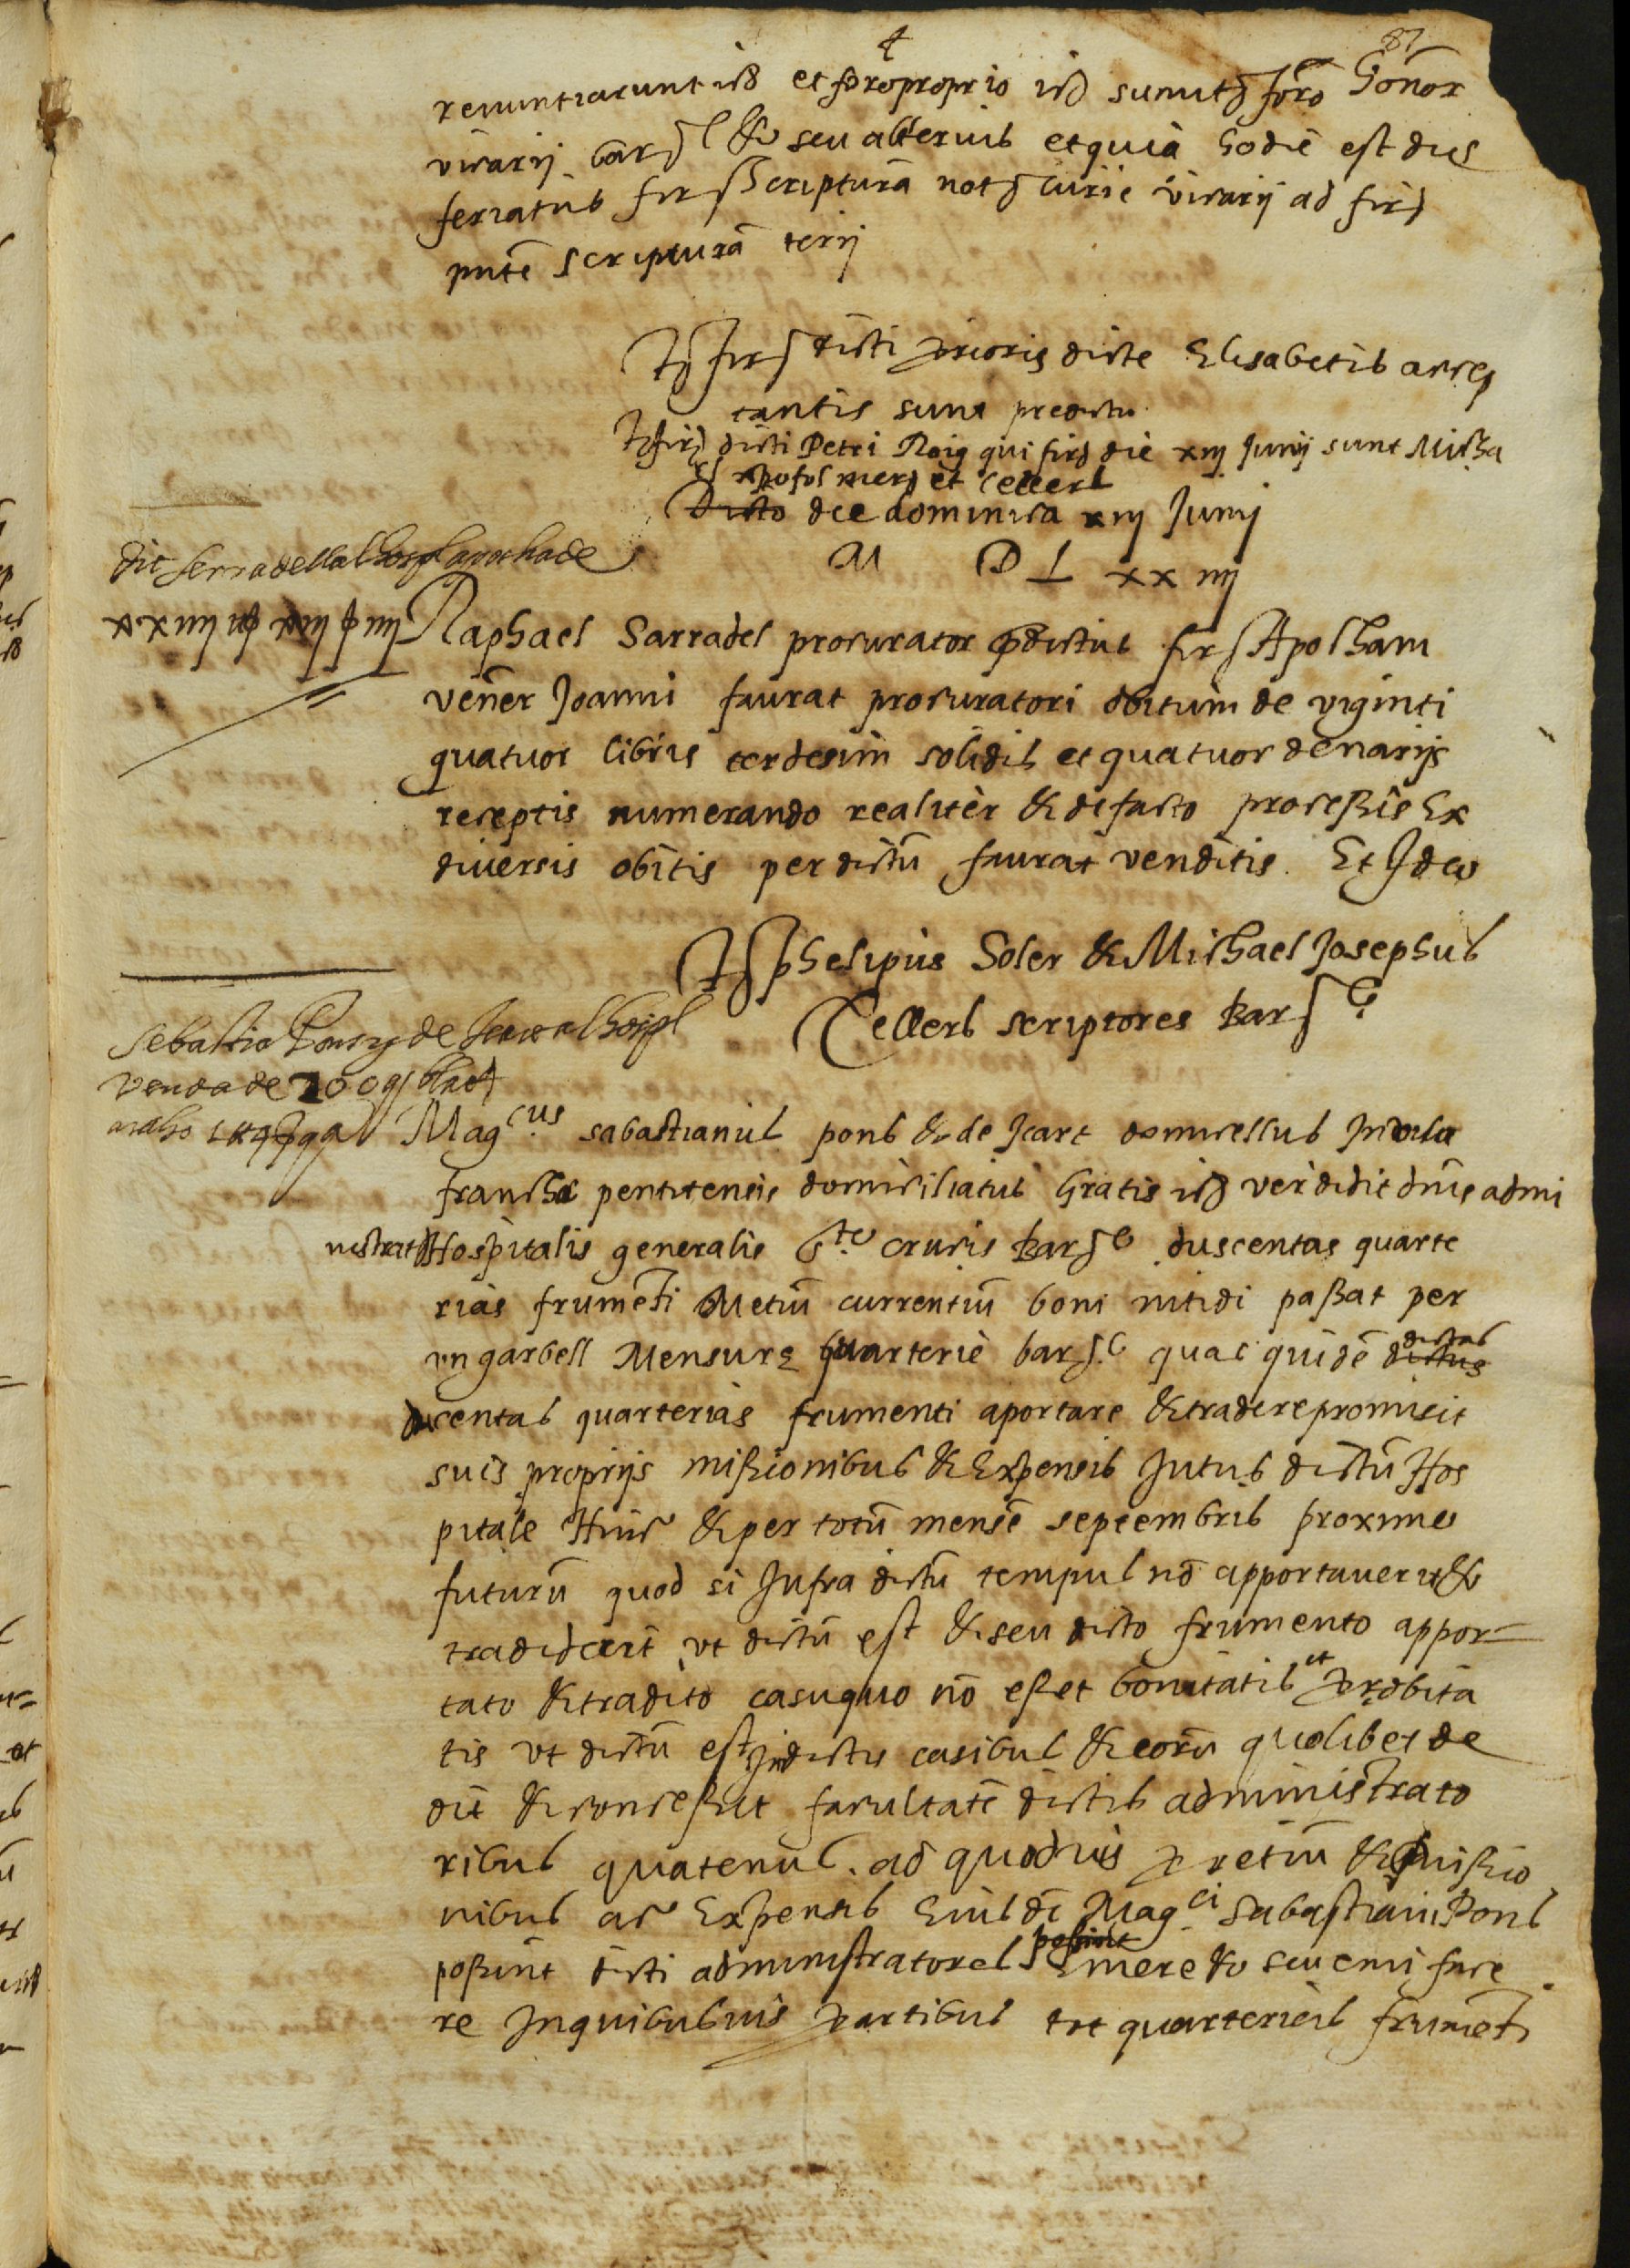 87
renuntiarunt et foro proprio sumitt foro honor
vicarij bar &c seu alterius et quia hodie est dies
feriatus fir scriptura not curie vicarij ad fir
pnte scriptura terij
Ts fir dicti prioris dicte Elisabetis accep
tantis sunt predicti
Ts fir dicti Petri Roig qui fir die xiij Junij sunt Micha
et Cellers
Dicto die dominica xiij Junij
M D L xx iiij
Dit Serradell al hospl apocha de
xxiiij xiij iiij
Raphael Sarradel procurator predictus fir Apolham
vener Joanni faurat procuratori obituum de viginti
quatuor libris terdecim solidis et quatuor denarijs
receptis numerando realiter & defacto processis Ex
diversis obitis per dictu faurat venditis. Et Ideo
Ts phelipus Soler & Michael Josephus
Cellers scriptores Bar
Sebastia Pons y de Icart al hospl
venda de 200 q blat
Magcus sabastianus pons & de Icart domicellus In vila
francha penitensis domiciliatus Gratis vendidit dnis admi
nistrat Hospitalis generalis Ste crucis Bar ducentas quarte
rias frumeti Metiu currentiu boni nitidi passat per
un garbell Mensure quarterie bar quas quide dictus dictas
ducentas quarterias frumenti aportare & tradere promisit
suis proprijs missionibus & Expensis Intus dictu Hos
pitale Hinc & per totu mense septembris proxime
futuru quod si Infra dictu tempus no apportaverit &
tradiderit ut dictu est & seu dicto frumento appor=
tato & tradito casu quo no esset bonitatis et probita
tis ut dictu est In dictis casibus & eoru quolibet de
dit & concessit facultate dictis administrato
ribus quatenus ad quodvis pretiu & missio
nibus ac Expensis Eiusde Magci Sabastiani Pons
possint dicti administratores possint Emere & seu emi face
re In quibusvis partibus tot quarterias frumeti